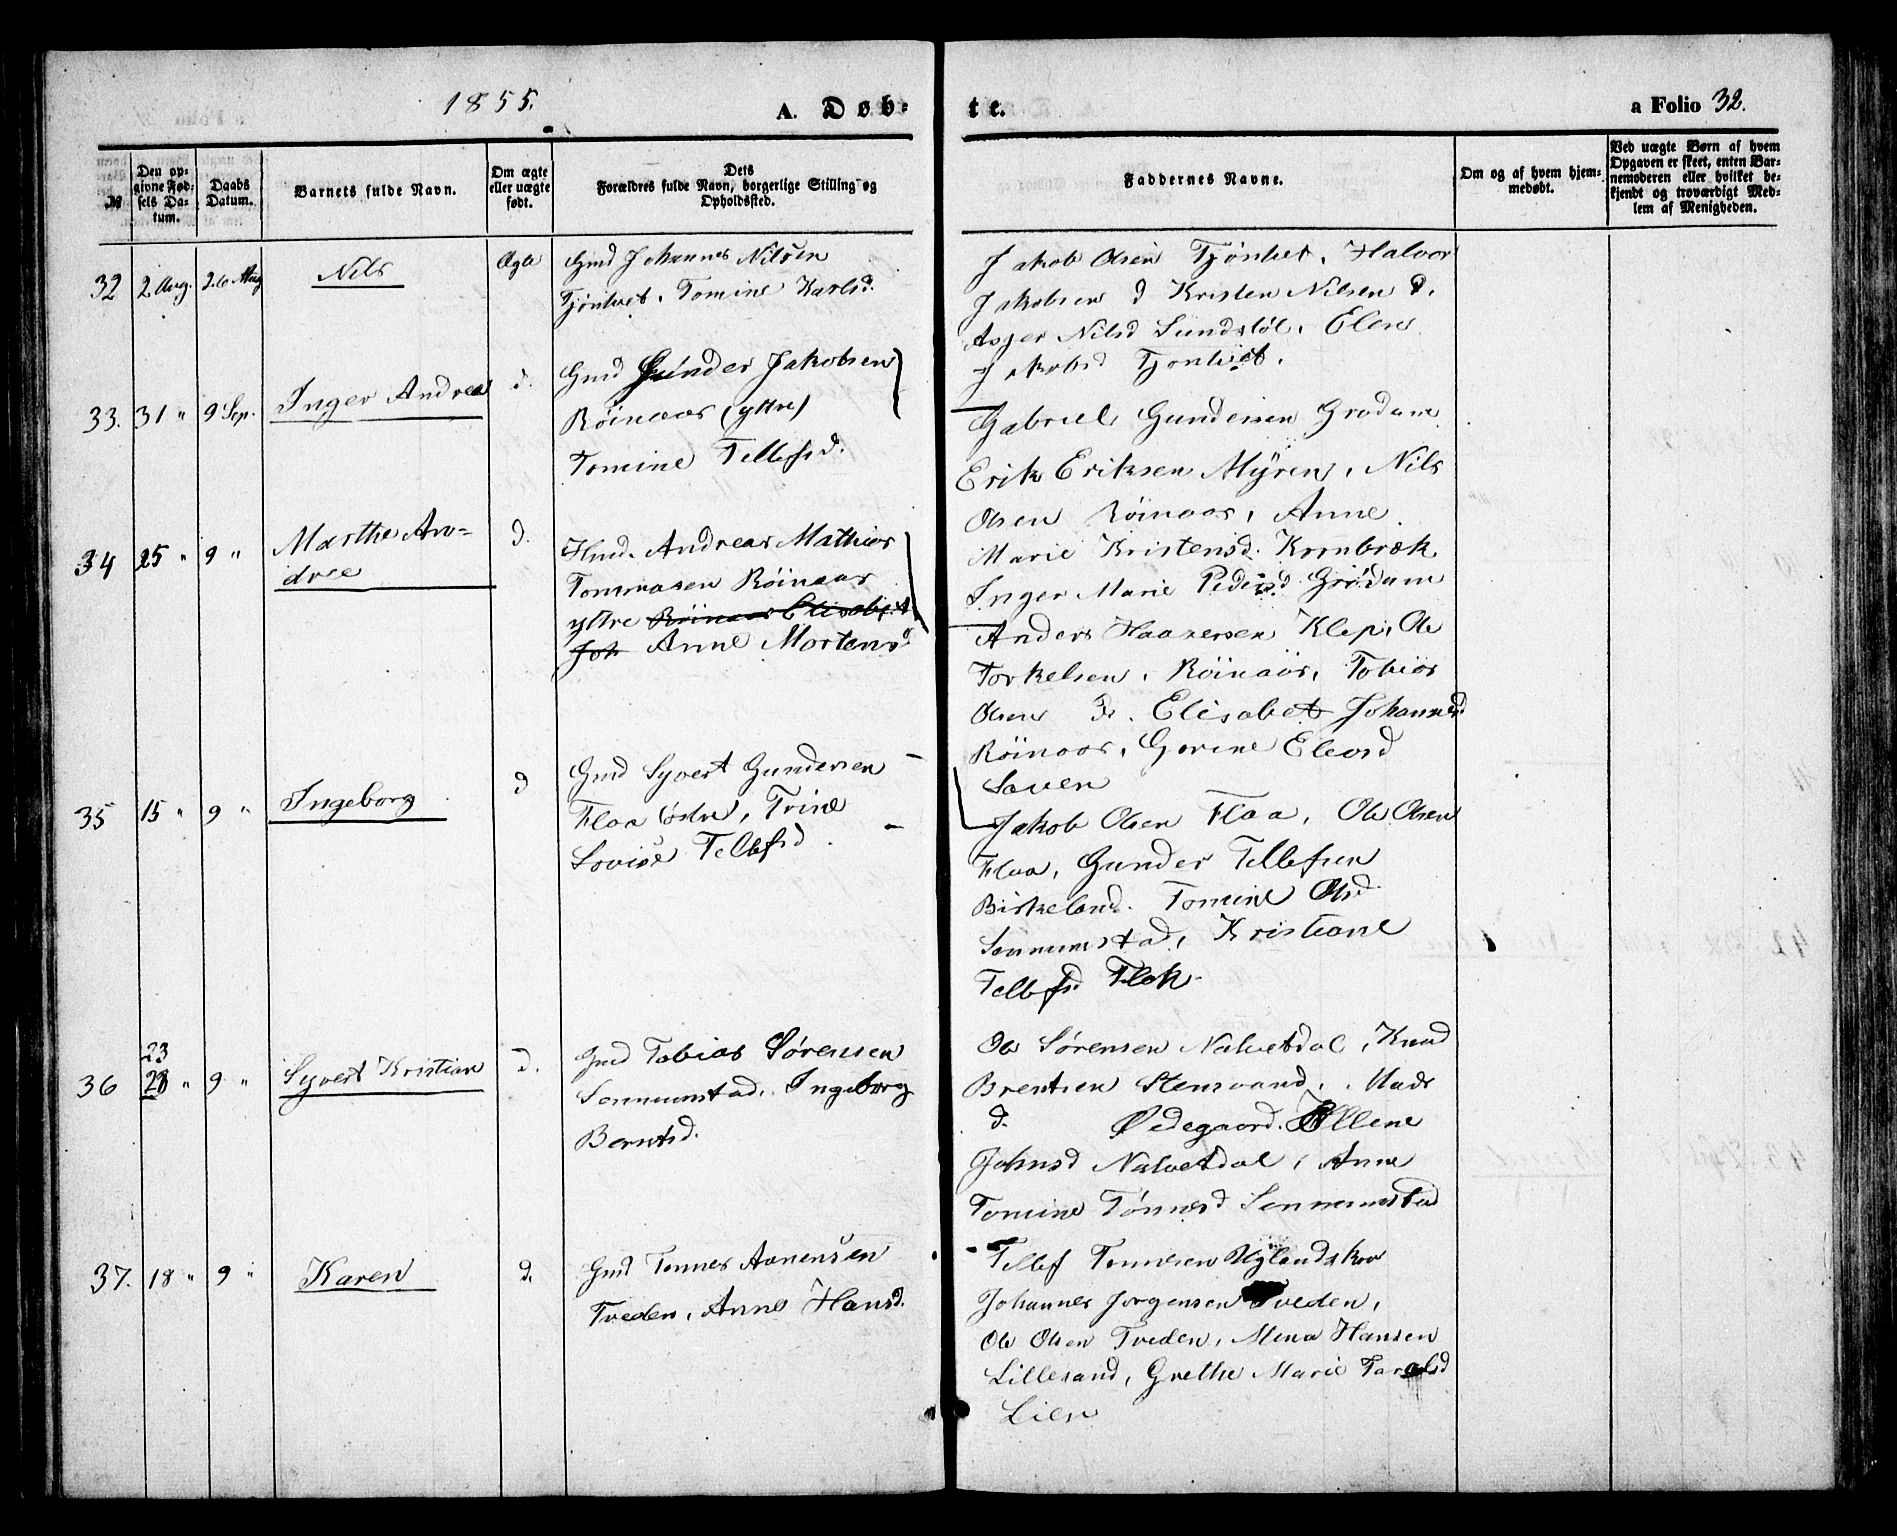 1855.
A. Døb-
te.
a Folio 32.
No
Den op-
givne Fød-
sels Da-
tum.
Daabs
Datum.
Barnets fulde Navn.
Om ægte
eller uægte
født.
Dets
Forældres fulde Navn, borgerlige Stilling og
Opholdssted.
Faddernes Navne.
Om og af hvem hjem-
medøbt.
Ved uægte Børn af hvem
Opgaven er skeet, enten Bar-
nemoderen eller hvilket be-
kjendt og troværdigt Med-
lem af Menigheden.
32 2 Aug. 26 Aug Nils Ægte
Gmd Johannes Nilsen
Tjónhvet. Tomine Karlsd.
Jakob Olsen Tjónhvet. Halvor
Jakobsen d Kristen Nilsen d.
Asger Nilsd Sundsløl. Elen
Jakobsd Tjonhvet.
33. 31 " 9 Sep. Inger Andrea d.
Gmd Gunder Jakobsen
Róinaas (yttre)
Tomine Tellefsd.
Gabriel Gundersen Grødum
Erik Eriksen Myren, Nils
Olsen Róinaas, Anne
Marie Kristensd. Kornbræk
Inger Marie Pedersd Grødum
34 25 " 9 " Marthe An-
drea
d.
Hmd. Andreas Mathias
Tommasen Róinaas
yttre Róinaas Elisabet
Joh Anne Mortensd
Anders Haanersen Klep, Ole
Torkelsen, Róinaas, Tobias
Olsen d. Elisabet Johannesd
Róinaas, Gorine Eleasd
Saven
35 15 " 9 " Ingeborg d
Gmd Syvert Gundersen
Flaa østre, Trine
Lovise Tellefsd.
Jakob Olsen Flaa, Ole Olsen
Flaa, Gunder Tellefsen
Birkeland. Tomine Olsd.
Sennumstad, Kristiane
Tellefsd Flak.
23
36 28 " 9 " Syvert Kristian d.
Gmd Tobias Sørensen
Sennumstad. Ingeborg
Berntsd.
Ole Sørensen Nalvetdal, Knud
Brentsen Stensvand, Mads
d. Ødegaard. Ellene
Johnsd Nalvetdal, Anne
Tomine Tónnesd Sennumstad
37. 18 " 9 " Karen d.
Gmd Tonnes Aanensen
Tveden, Anne Hansd.
Tellef Tonnesen Uglandskov
Johannes Jorgensen Tveden,
Ole Olsen Tveden, Mina Hansen
Lillesand, Grethe Marie Taraldsd
Lien